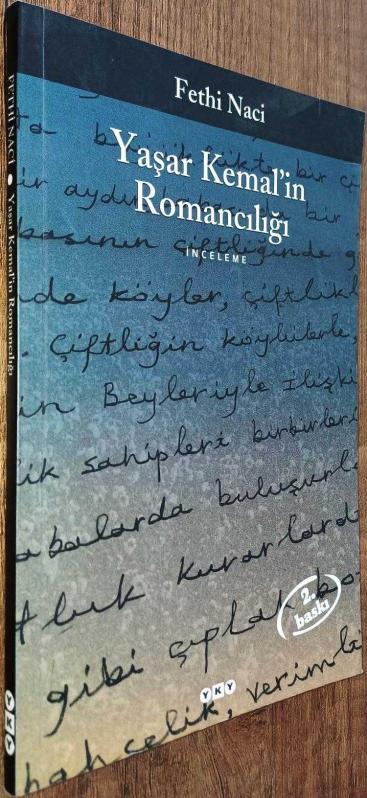 Fethi Naci
Yaşar Kemal'in
Romancılığı
İNCELEME
bir
ir aydın bir
basının çiftliğinde g
de köyler, çiftlikl
. Çiftliğin köylülerle,
in Beyleriyle ilişki
lik sahipleri birbirleri
abalarda buluşurl
tluk kurarlard
gibi çıplak bo
bahçelik, verimli
2.
baskı
YKY
FETHİ NACİ • Yaşar Kemal'in Romancılığı
YKY